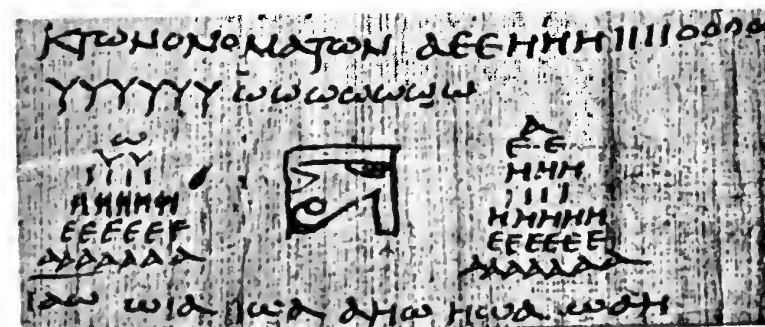 κτωνονοματων αεεηηηιιιιοοοο
υυυυυυ ωωωωωωω
ω
υυ
ιιιι
ηηηηη
εεεεεε
ααααααα
α
εε
ηηη
ιιιι
ηηηηη
εεεεεε
ααααααα
ιαω ωια ιωα αηω ηωα ωαη